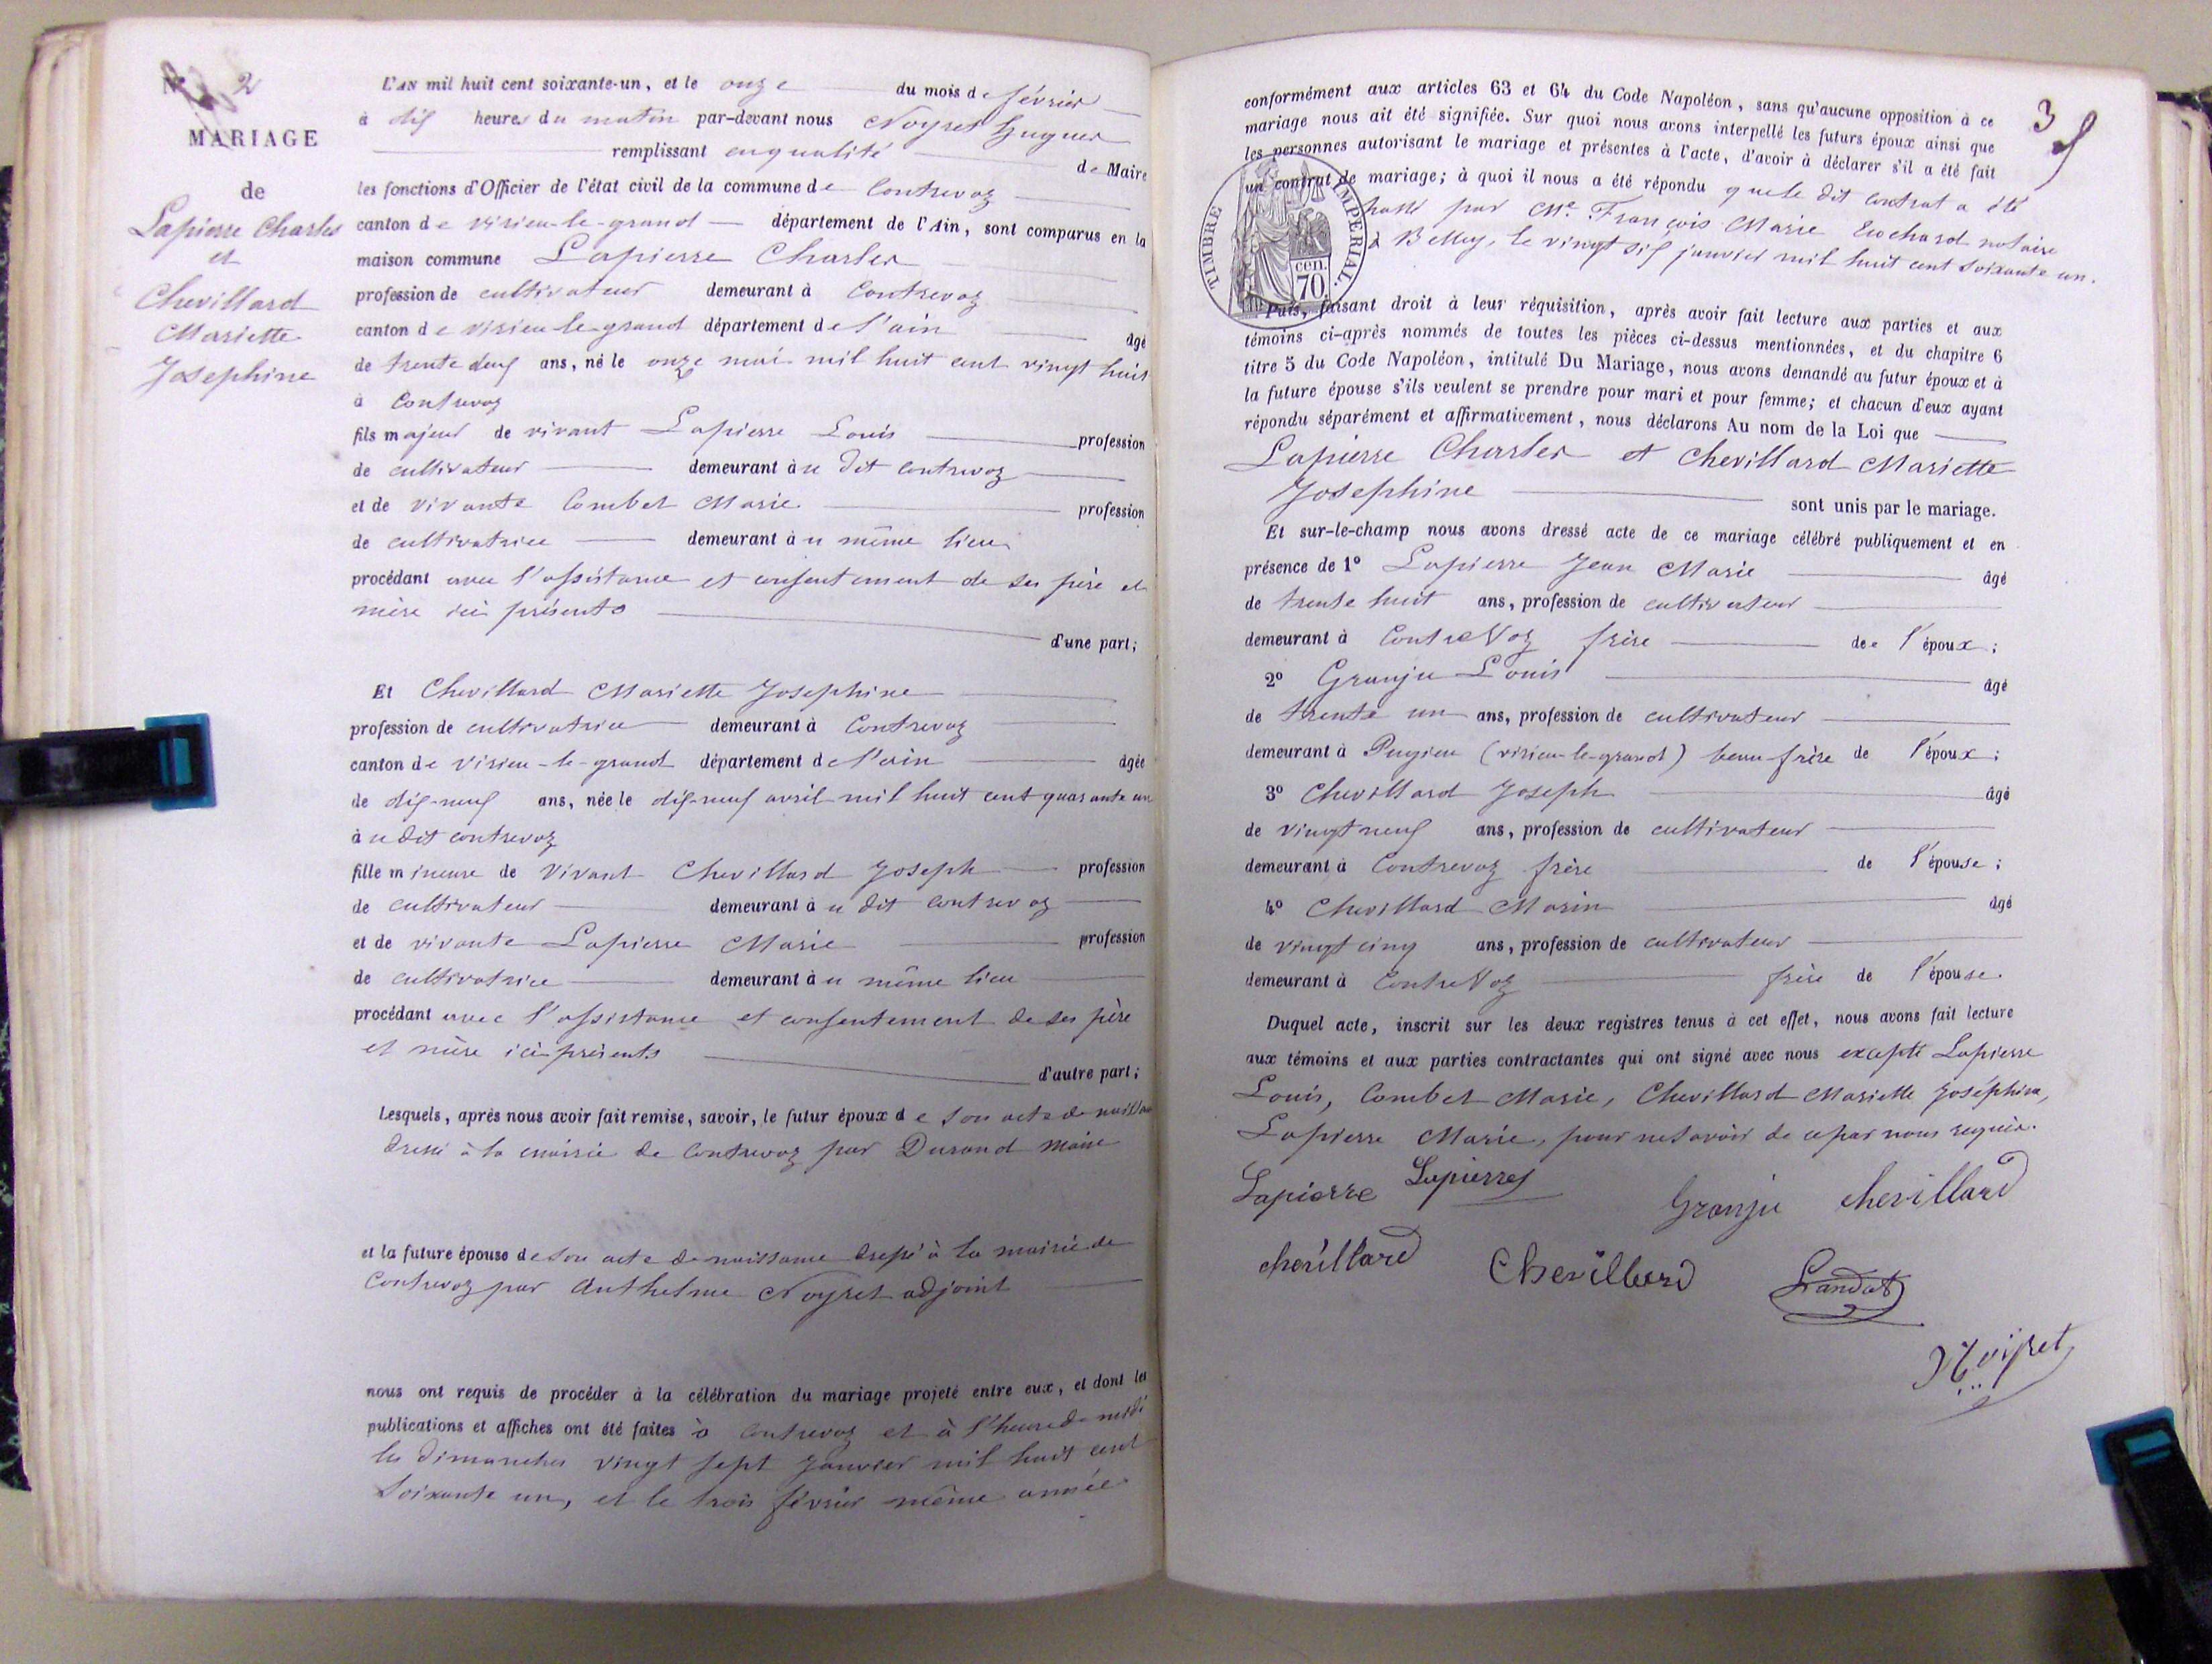 N° 2
MARIAGE
de
Lapierre Charles
et
Chevillard
Mariette
Josephine
L'AN mil huit cent soixante-un, et le onze du mois de février
à dix heures du matin par-devant nous Noyret Hugues
remplissant en qualité de Maire
les fonctions d'Officier de l'état civil de la commune de Contrevoz
canton de virieu-le-grand département de l'Ain, sont comparus en la
maison commune Lapierre Charles
profession de cultivateur demeurant à Contrevoz
canton de virieu le-grand département de l'ain âgé
de trente deux ans, né le onze mai mil huit cent vingt huit
à Contrevoz
fils majeur de vivant Lapierre Louis profession
de cultivateur demeurant au dit contrevoz
et de vivante Combet Marie profession
de cultivatrice demeurant au même lieu
procédant avec l'assistance et consentement de ses père et
mère ici présents
d'une part;
Et Chevillard Mariette Josephine
profession de cultivatrice demeurant à Contrevoz
canton de virieu-le-grand département de l'ain âgée
de dix-neuf ans, née le dix-neuf avril mil huit cent quarante un
au dit contrevoz
fille mineure de vivant Chevillard Joseph profession
de cultivateur demeurant au dit contrevoz
et de vivante Lapierre Marie profession
de cultivatrice demeurant au même lieu
procédant avec l'assistance et consentement de ses père
et mère ici présents
d'autre part;
Lesquels, après nous avoir fait remise, savoir, le futur époux de son acte de naissance
dressé à la mairie de Contrevoz par Durand Maire
et la future épouse de son acte de naissance dressé à la mairie de
Contrevoz par Anthelme Noyret adjoint
nous ont requis de procéder à la célébration du mariage projeté entre eux, et dont les
publications et affiches ont été faites à Contrevoz et à l'heure de midi
les dimanches vingt sept janvier mil huit cent
soixante un, et le trois février même année
3
conformément aux articles 63 et 64 du Code Napoléon, sans qu'aucune opposition à ce
mariage nous ait été signifiée. Sur quoi nous avons interpellé les futurs époux ainsi que
les personnes autorisant le mariage et présentes à l'acte, d'avoir à déclarer s'il a été fait
un contrat de mariage; à quoi il nous a été répondu que le dit contrat a été
passé par Me François Marie notaire
à Belley, le vingt six janvier mil huit cent soixante un.
TIMBRE IMPERIAL.
70 cen.
Puis, faisant droit à leur réquisition, après avoir fait lecture aux parties et aux
témoins ci-après nommés de toutes les pièces ci-dessus mentionnées, et du chapitre 6
titre 5 du Code Napoléon, intitulé Du Mariage, nous avons demandé au futur époux et à
la future épouse s'ils veulent se prendre pour mari et pour femme; et chacun d'eux ayant
répondu séparément et affirmativement, nous déclarons Au nom de la Loi que
Lapierre Charles et Chevillard Mariette
Josephine sont unis par le mariage.
Et sur-le-champ nous avons dressé acte de ce mariage célébré publiquement et en
présence de 1° Lapierre Jean Marie âgé
de trente huit ans, profession de cultivateur
demeurant à Contrevoz frère de l'époux;
2° Granju Louis âgé
de trente un ans, profession de cultivateur
demeurant à Pugieu (virieu-le-grand) beau-frère de l'époux;
3° Chevillard Joseph âgé
de vingt neuf ans, profession de cultivateur
demeurant à Contrevoz frère de l'épouse;
4° Chevillard Marin âgé
de vingt cinq ans, profession de cultivateur
demeurant à Contrevoz frère de l'épouse.
Duquel acte, inscrit sur les deux registres tenus à cet effet, nous avons fait lecture
aux témoins et aux parties contractantes qui ont signé avec nous excepté Lapierre
Louis, Combet Marie, Chevillard Mariette Joséphine,
Lapierre Marie, pour ne savoir de ce par nous requis.
Lapierre Lapierre Granju chevillard
chevillard Chevillard Landot
Noyret